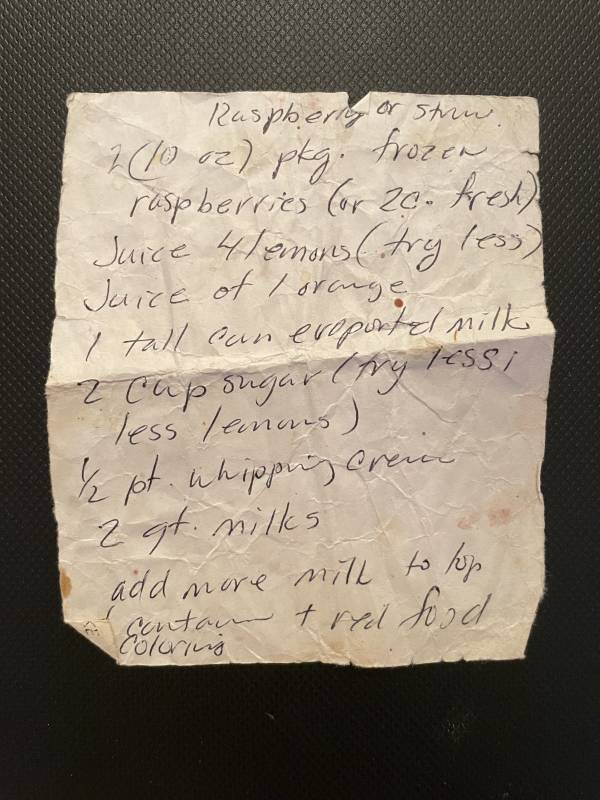 Raspberry or straw.
2 (10 oz) pkg. frozen
raspberries (or 2c. fresh)
Juice 4 lemons (try less)
Juice of 1 orange
1 tall can evaporated milk
2 cup sugar (try less;
less lemons)
1/2 pt. whipping cream
2 qt. milks
add more milk to top
container + red food
coloring